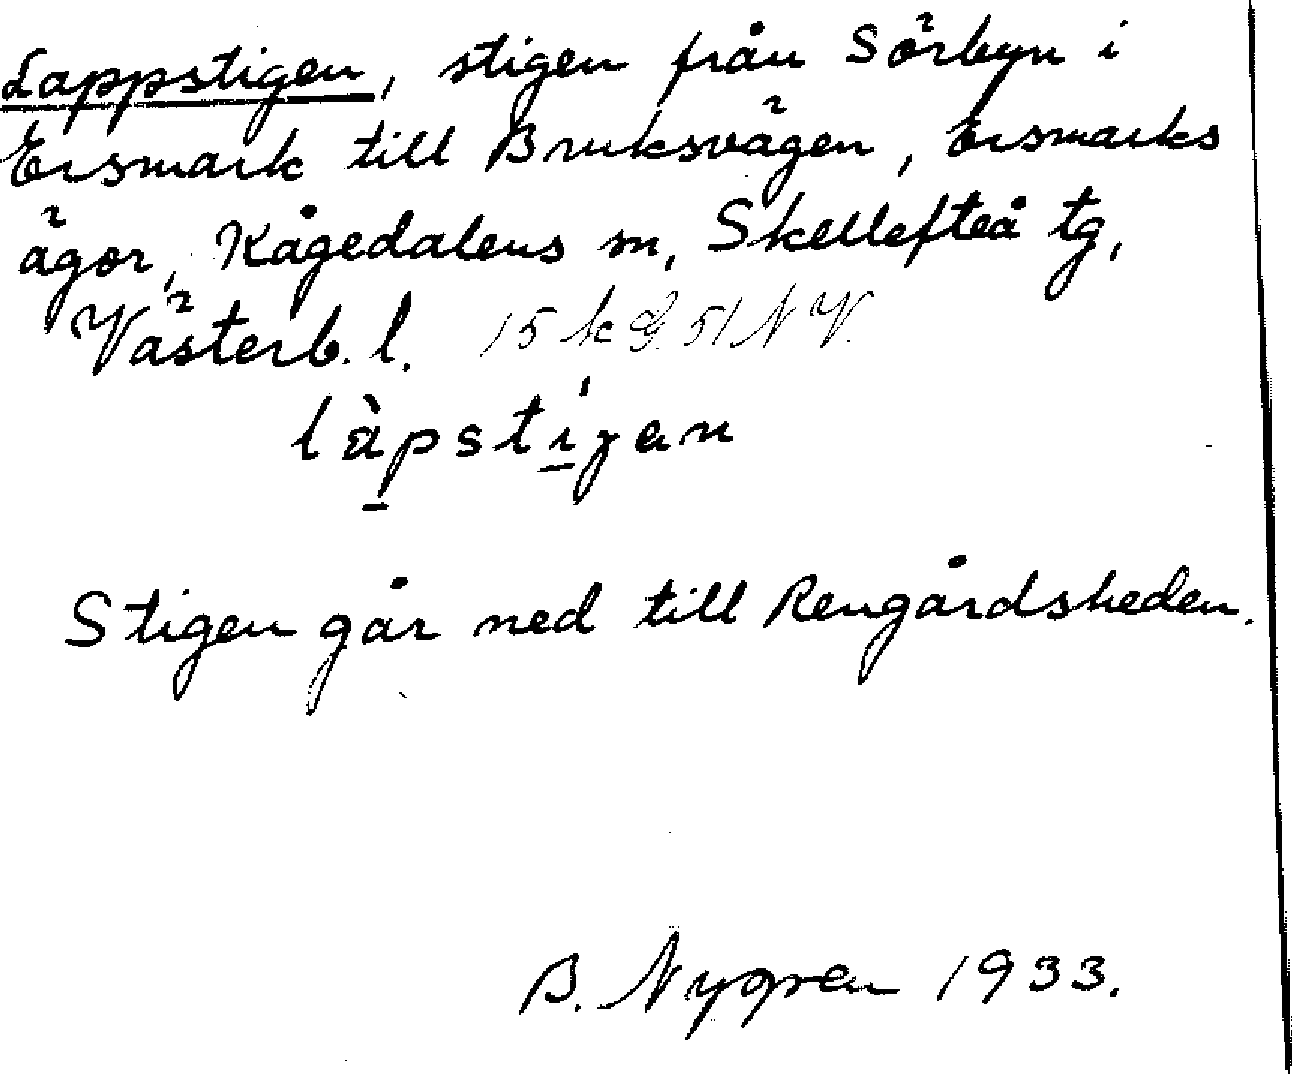 Lappstigen, stigen från Sörbyn i
Ersmark till Bruksvägen, Ersmarks
ägor, Kågedalens sn, Skellefteå tg,
Västerb. l. 15 k 51 NV.
làpstigan
Stigen går ned till Rengårdsheden.
B. Nygren 1933.